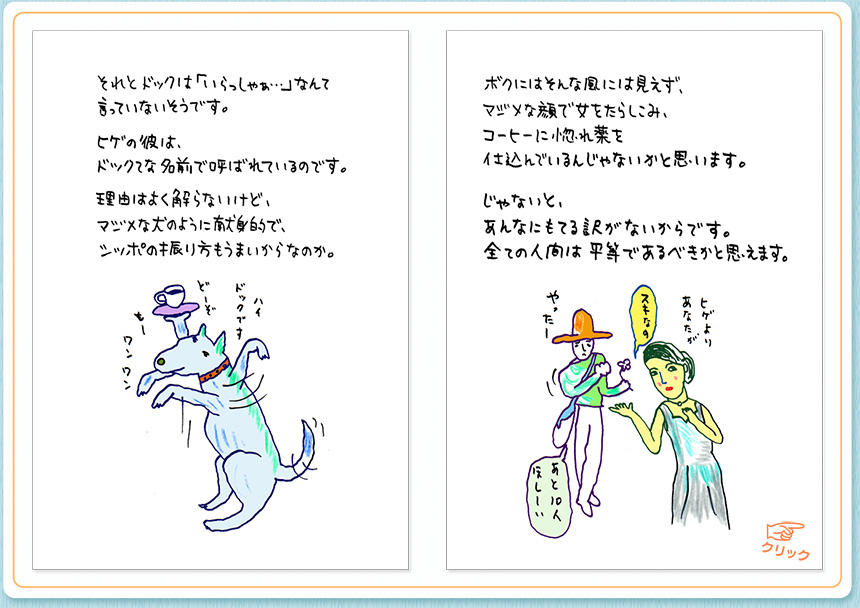 それとドックは「いらっしゃぁ…」なんて
言っていないそうです。
ヒゲの彼は、
ドックてな名前で呼ばれているのです。
理由はよく解らないけど、
マジメな犬のように献身的で、
シッポの振り方もうまいからなのか。
ハイ
ドックです
どーぞ
もー
ワンワン
ボクにはそんな風には見えず、
マジメな顔で女をたらしこみ、
コーヒーに惚れ薬を
仕込んでいるんじゃないかと思います。
じゃないと、
あんなにもてる訳がないからです。
全ての人間は平等であるべきかと思えます。
やったー
スキなの
ヒゲより
あなたが
あと10人
ほしーい
クリック